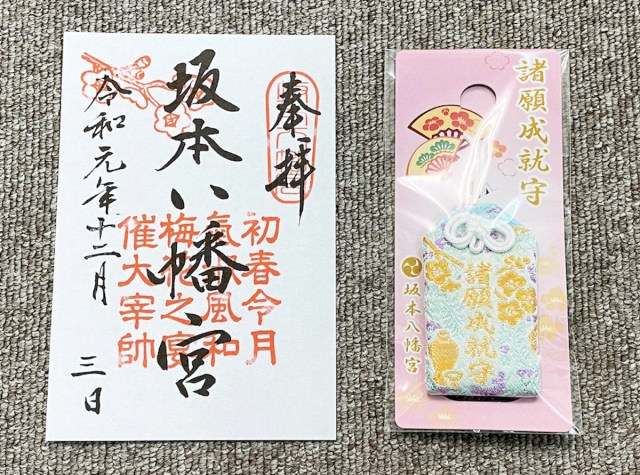 奉拝
坂本八幡宮
初春令月
氣淑風和
梅花之宴
催大宰帥
令和元年十二月
三日
諸願成就守
諸願成就守
坂本八幡宮